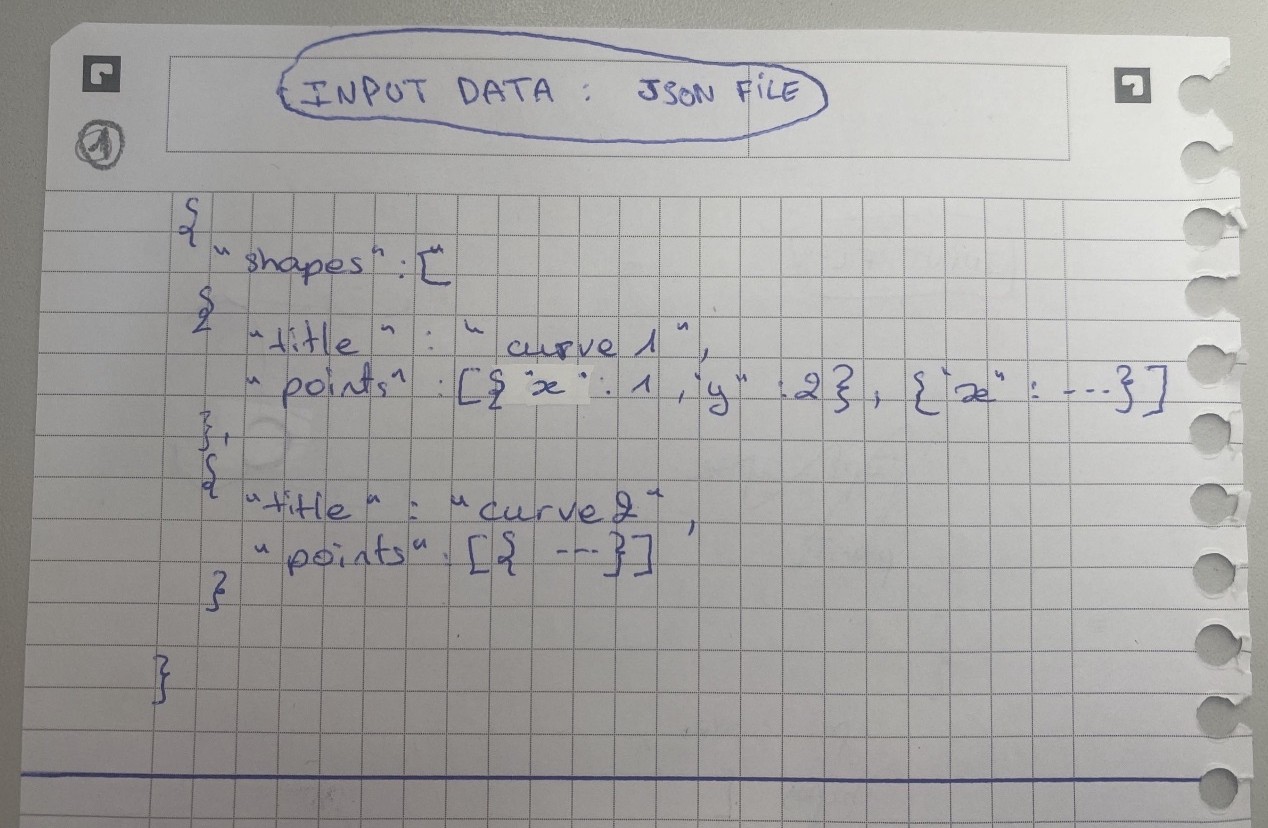 INPUT DATA : JSON FILE
1
{
"shapes" : [
{
"title" : "curve 1",
"points" : [{"x" : 1 , "y" : 2}, {"x" : ---}]
},
{
"title" : "curve 2" ,
"points" : [{ --- }]
}
}